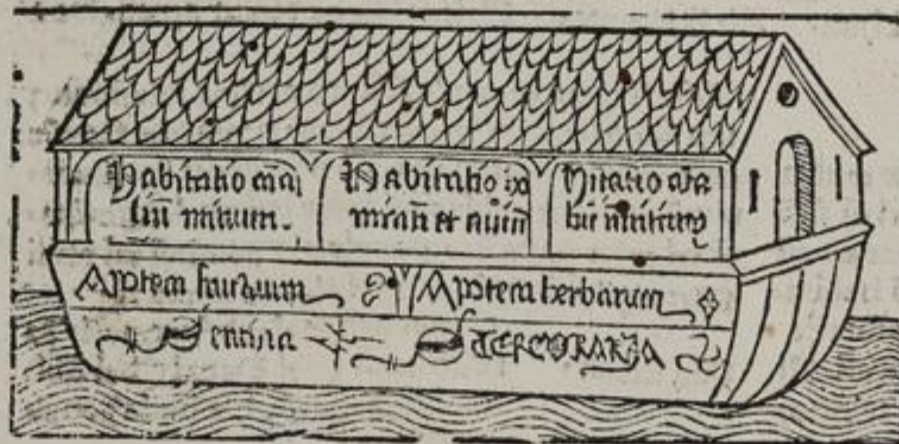 Habitatio aīa
liū mitium.
Habitatio ho
minū et auiū
Hitatio aīa
liū īmitiū
Apoteca fructuum
Apoteca herbarum
Sentina
STERCORARIA